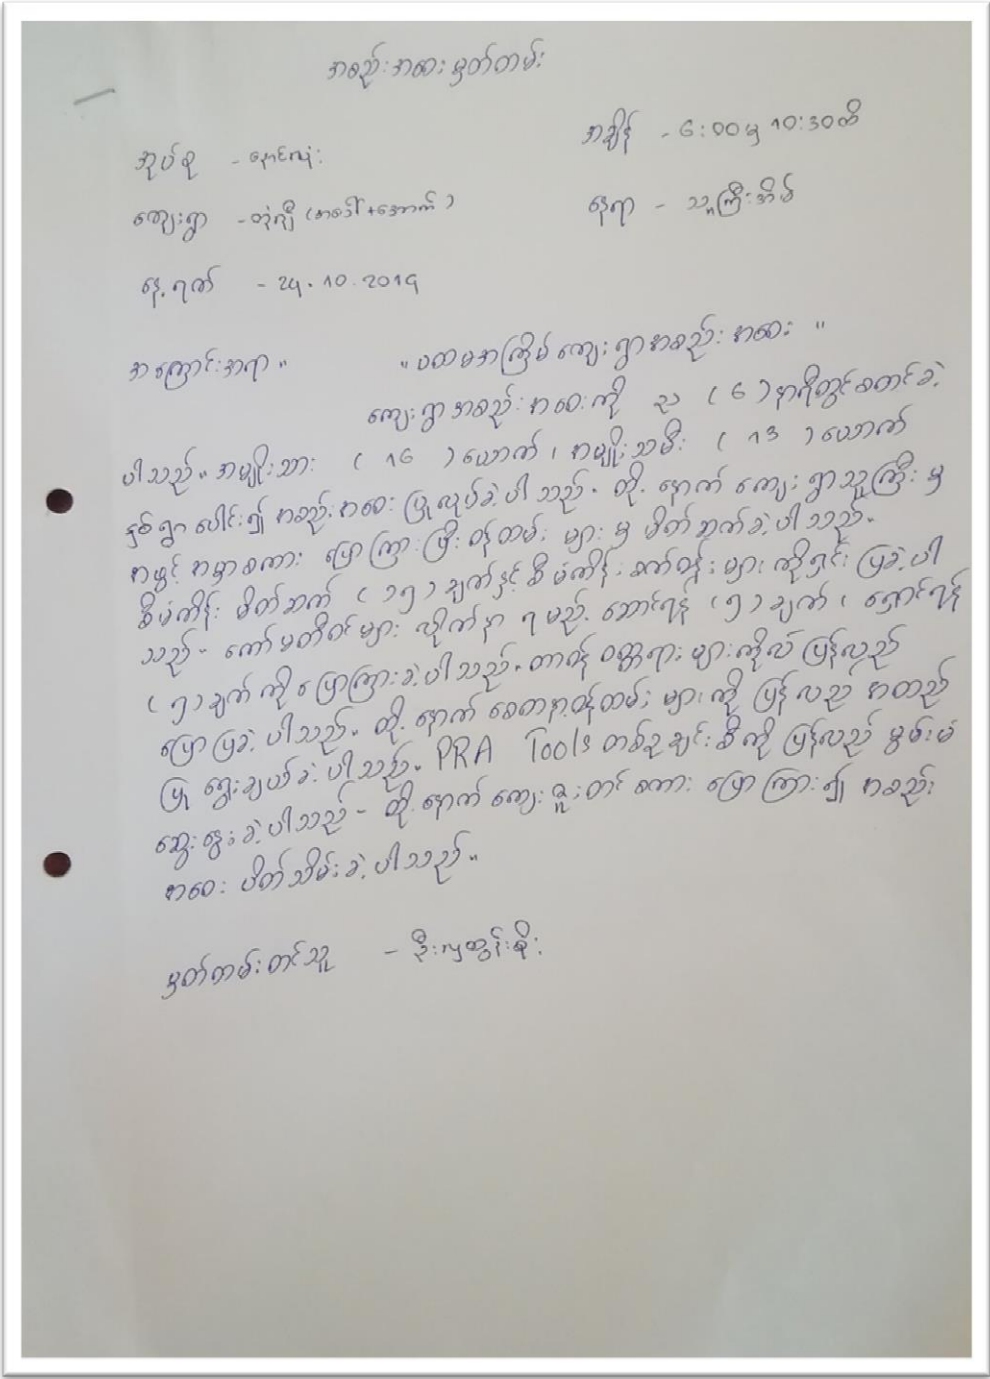 အစည်းအဝေးမှတ်တမ်း
အချိန် - 6:00 မှ 10:30 ထိ
အုပ်စု - နောင်လုံး
ကျေးရွာ - (အပေါ်+အောက်)
နေရာ - သူကြီးအိမ်
နေ့ရက် - 24.10.2019
အကြောင်းအရာ။ "ပထမအကြိမ် ကျေးရွာအစည်းအဝေး"
ကျေးရွာအစည်းအဝေးကို ည (6) နာရီတွင်စတင်ခဲ့
ပါသည်။ အမျိုးသား (16) ယောက်၊ အမျိုးသမီး (13) ယောက်
နှစ်ရွာပေါင်း၍ အစည်းအဝေးပြုလုပ်ခဲ့ပါသည်။ ထို့နောက် ကျေးရွာသူကြီးမှ
အဖွင့်အမှာစကား ပြောကြားပြီး ဝန်ထမ်းများမှ မိတ်ဆက်ခဲ့ပါသည်။
စီမံကိန်းမိတ်ဆက် (၁၅) ချက်နှင့် စီမံကိန်းစက်ဝန်းများကိုရှင်းပြခဲ့ပါ
သည်။ ကော်မတီဝင်များ လိုက်နာရမည့် ဆောင်ရန် (၅) ချက်၊ ရှောင်ရန်
(၅) ချက်ကို ပြောကြားခဲ့ပါသည်။ တာဝန်ဝတ္တရားများကိုလဲ ပြန်လည်
ပြောပြခဲ့ပါသည်။ ထို့နောက် စေတနာ့ဝန်ထမ်းများကို ပြန်လည်အတည်
ပြုရွေးချယ်ခဲ့ပါသည်။ PRA Tools တစ်ခုချင်းစီကို ပြန်လည်မွမ်းမံ
ဆွေးနွေးခဲ့ပါသည်။ ထို့နောက် ကျေးဇူးတင်စကားပြောကြား၍ အစည်း
အဝေးပိတ်သိမ်းခဲ့ပါသည်။
မှတ်တမ်းတင်သူ - ဦးလှထွန်းစိုး